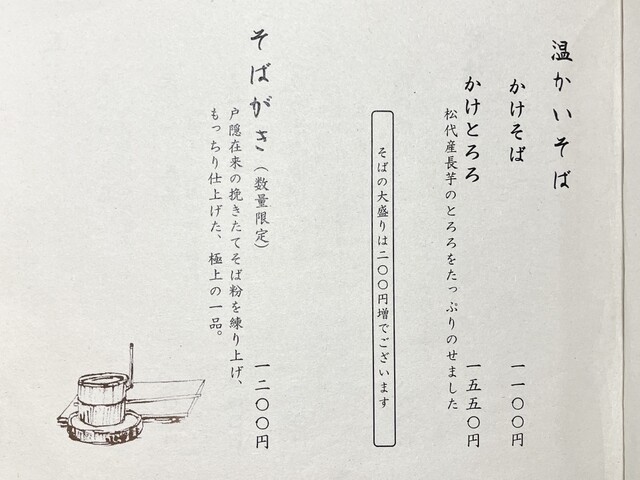 温かいそば
かけそば 一一〇〇円
かけとろろ 一五五〇円
松代産長芋のとろろをたっぷりのせました
そばの大盛りは二〇〇円増でございます
そばがき（数量限定） 一二〇〇円
戸隠在来の挽きたてそば粉を練り上げ、
もっちり仕上げた、極上の一品。